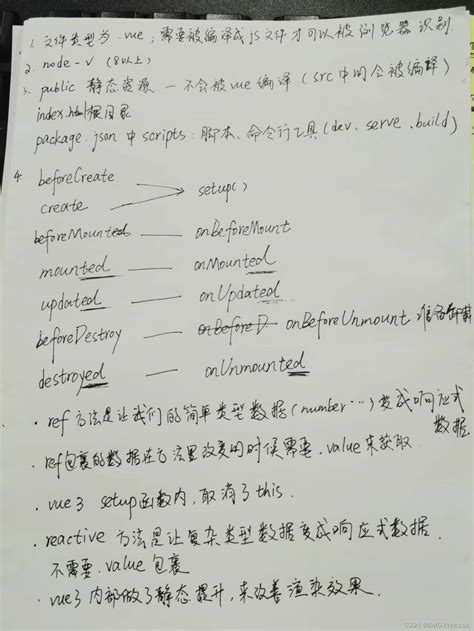 1. 文件类型为 .vue ; 需要被编译成js文件才可以被浏览器识别.
2. node -v (8以上)
3. public 静态资源 — 不会被vue编译 (src中的会被编译)
index.html根目录
package.json 中 scripts: 脚本、命令行工具(dev、serve、build)
4. beforeCreate
create setup()
beforeMounted onBeforeMount
mounted onMounted
updated onUpdated
beforeDestroy onBeforeD onBeforeUnmount 准备卸载
destroyed onUnmounted
· ref 方法是让我们的简单类型数据(number…)变成响应式
数据.
· ref包裹的数据在方法里改变的时候需要.value来获取.
· vue3 setup函数内, 取消了this.
· reactive 方法是让复杂类型数据变成响应式数据.
不需要.value包裹
· vue3内部做了静态提升, 来改善渲染效果.